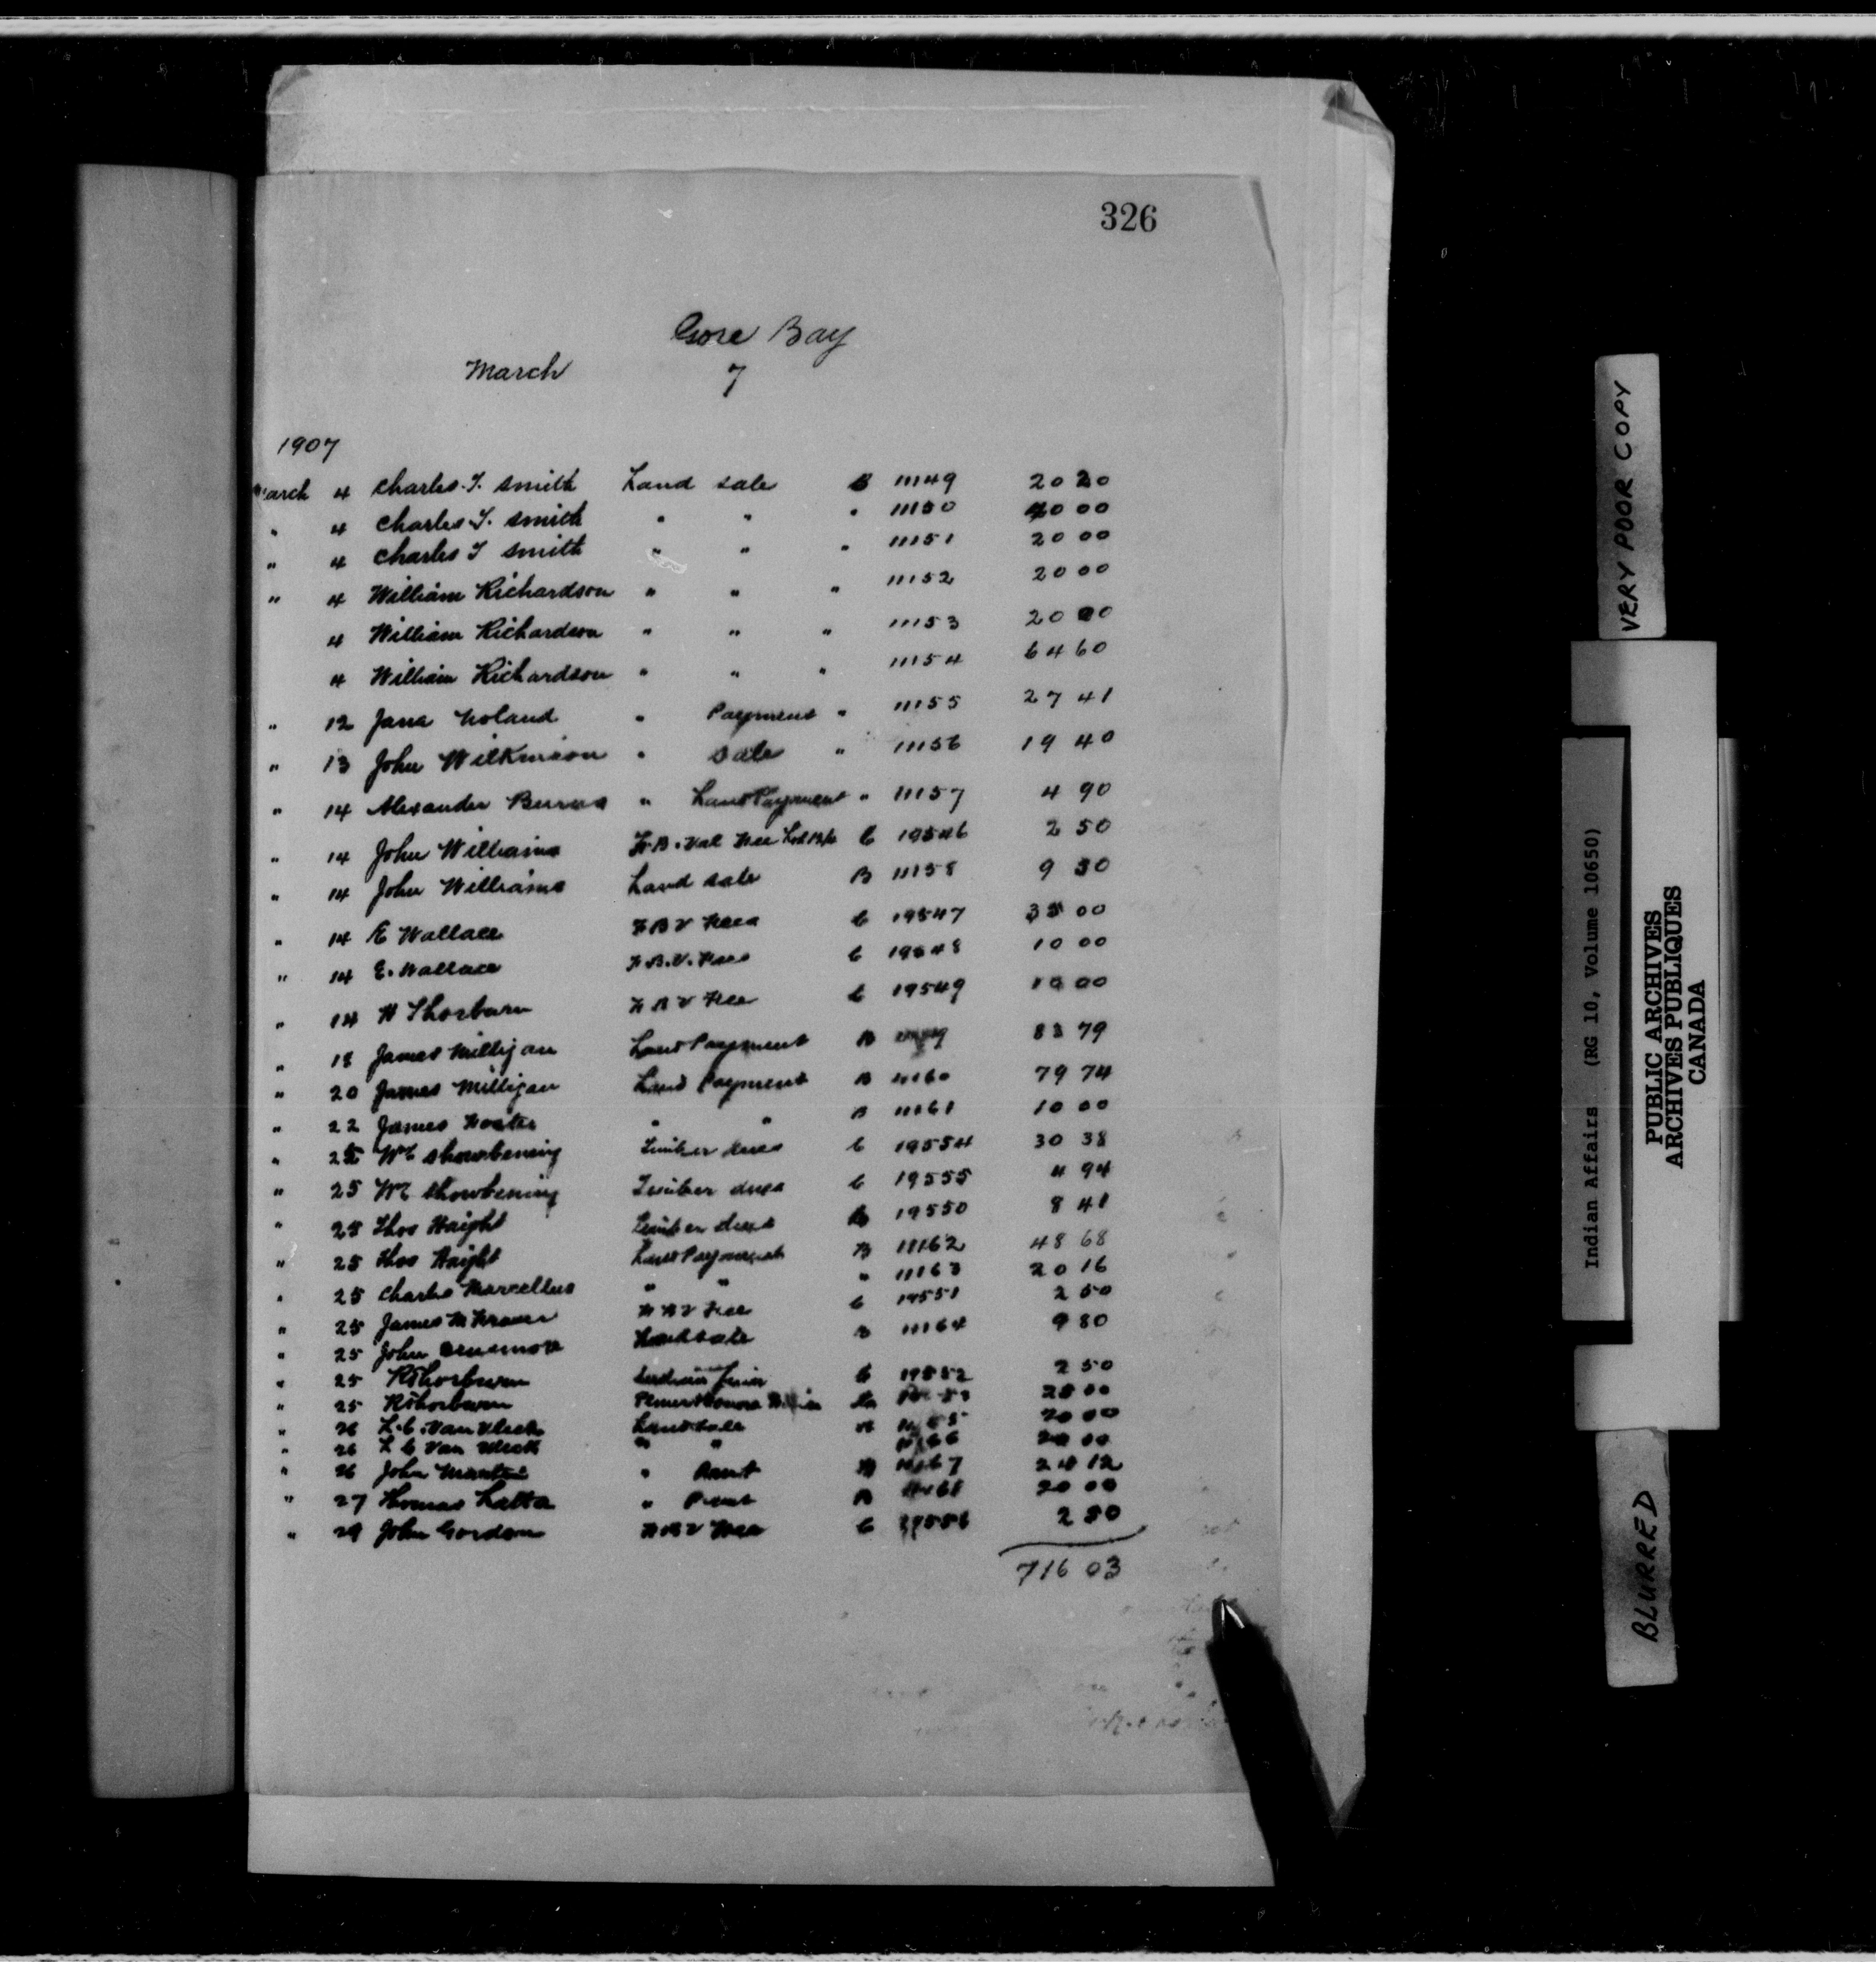 326
Gore Bay
March 7
1907
March 4 Charles T. Smith Land sale B 11149 20 20
" 4 Charles T. Smith " " " 11150 40 00
" 4 Charles T Smith " " " 11151 20 00
" 4 William Richardson " " " 11152 20 00
4 William Richardson " " " 11153 20 00
4 William Richardson " " " 11154 64 60
" 12 Jana Noland " Payment " 11155 27 41
" 13 John Wilkinson " Sale " 11156 19 40
" 14 Alexander Burns " Land Payment " 11157 4 90
" 14 John Williams C 19546 2 50
" 14 John Williams Land sale B 11158 9 30
" 14 E Wallace C 19547 35 00
" 14 E. Wallace C 19548 10 00
" 14 H Thorburn C 19549 10 00
" 18 James Milligan Land Payment B 83 79
" 20 James Milligan Land Payment B 11160 79 74
" 22 James Foster " " B 11161 10 00
" 25 Timber dues C 19554 30 38
" 25 Timber dues C 19555 4 94
" 25 Thos Haight Timber dues 19550 8 41
" 25 Thos Haight Land Payment B 11162 48 68
" 25 Charles Marcellus " " " 11163 20 16
" 25 James C 19551 2 50
" 25 John Land sale B 11164 9 80
" 25 R Thorburn C 19552 2 50
" 25 R Thorburn
" 26 L. C. Van Vleck Land sale 20 00
" 26 L C Van Vleck " "
" 26 John " 24 12
" 27 Thomas Latta " B 20 00
" 29 John Gordon C 2 50
716 03
VERY POOR COPY
Indian Affairs (RG 10, Volume 10650)
PUBLIC ARCHIVES
ARCHIVES PUBLIQUES
CANADA
BLURRED